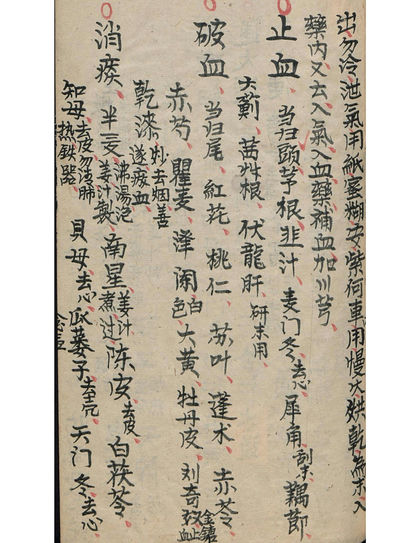 出勿冷泄氣用紙蜜糊安紫何車用慢火烘乾為末入
藥內又去入氣入血藥補血加川芎
止血 当归頭 芋根 韭汁 麦门冬去心 犀角刮末 藕節
大薊 茜性根 伏龍肝研末用
破血 当归尾 紅花 桃仁 苏叶 蓬术 赤苓
赤芍 瞿麦 泽闲白色 大黄 牡丹皮 刘奇
乾漆炒去烟善遂瘀血
消痰 半夏姜汁製沸湯泡 南星姜汁煮过 陈皮去皮 白茯苓
知母去皮勿清肺热鉄器 貝母去心 瓜蒌子去壳 天门冬去心